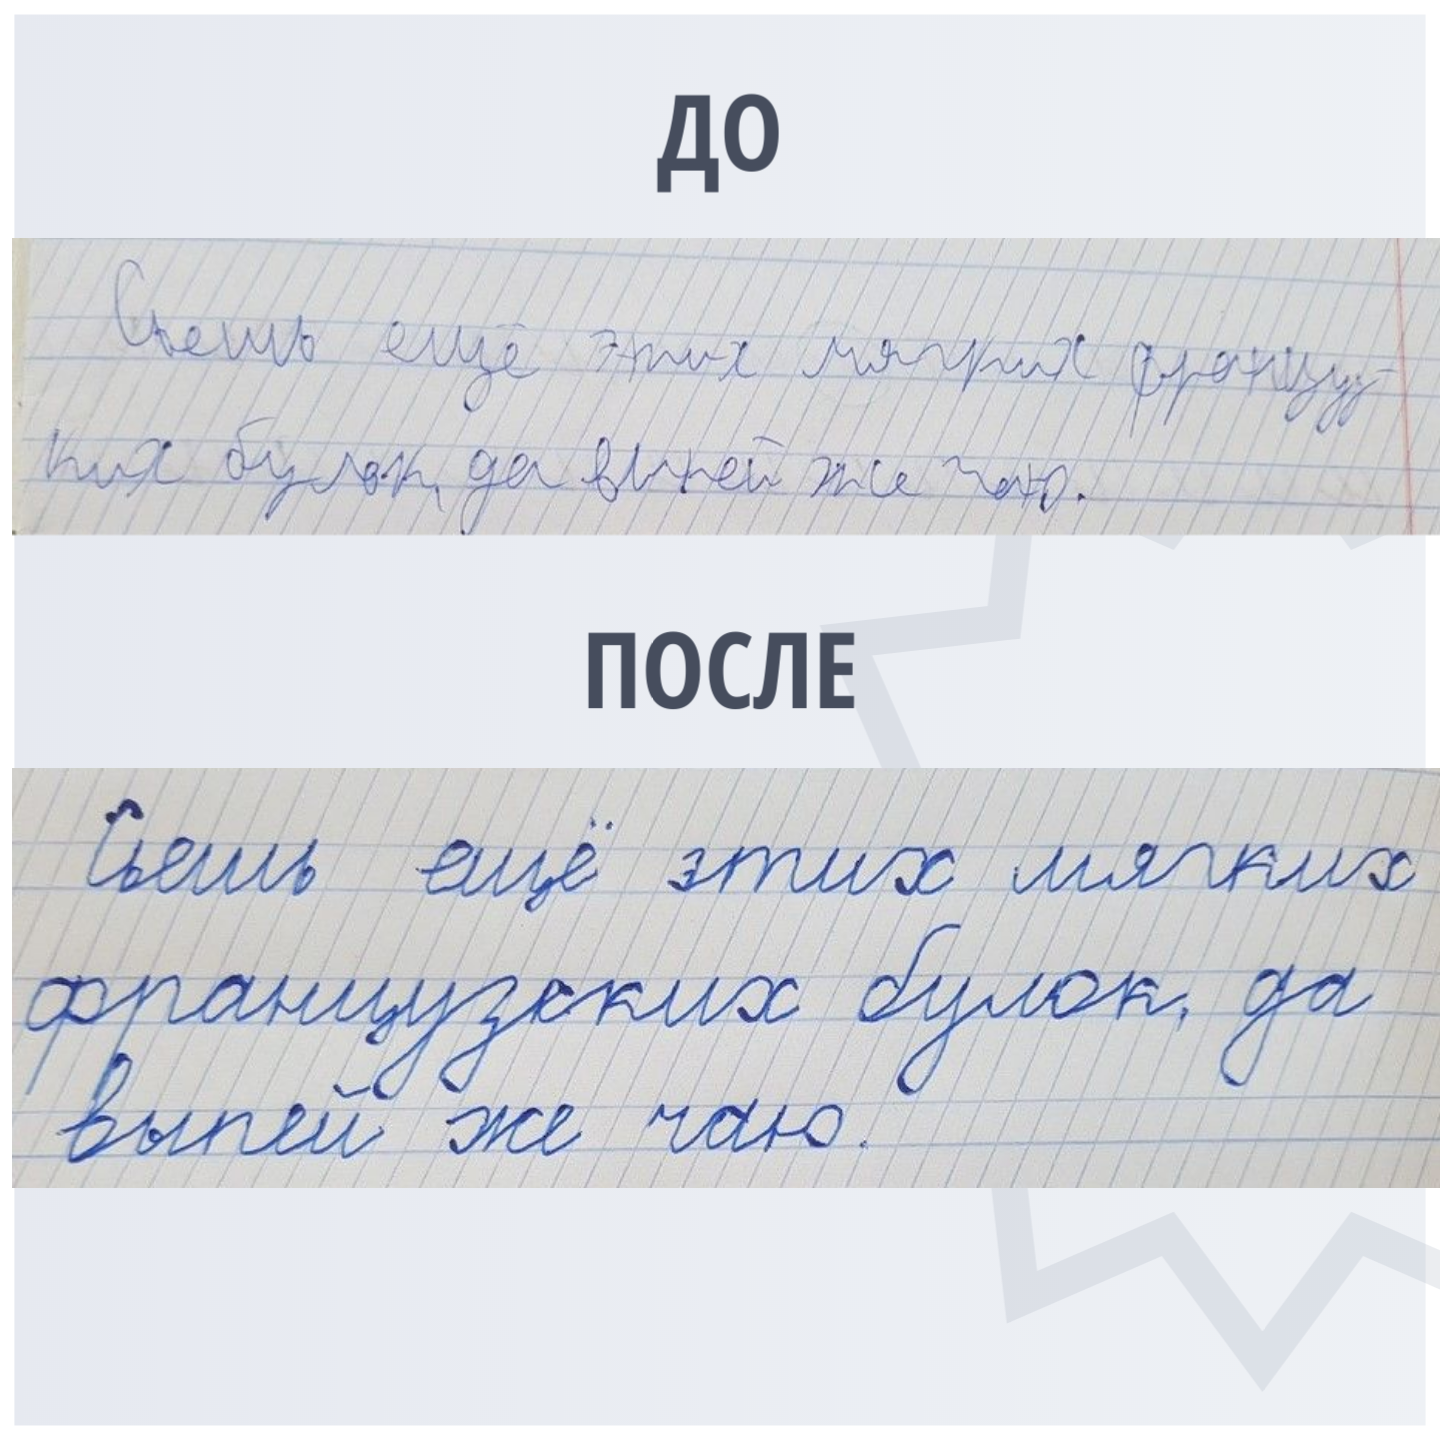 ДО
Сьешь ещё этих мягких француз-
ких булок, да выпей же чаю.
ПОСЛЕ
Сьешь ещё этих мягких
французских булок, да
выпей же чаю.